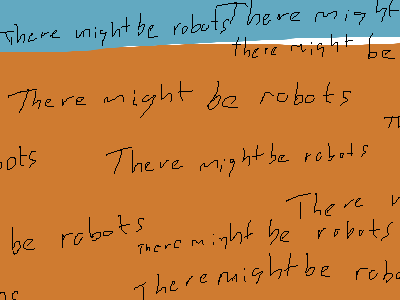 There might be robots
There migh
there might be
There might be robots
Th
bots
There might be robots
There r
be robots
There might be robots
There might be robo